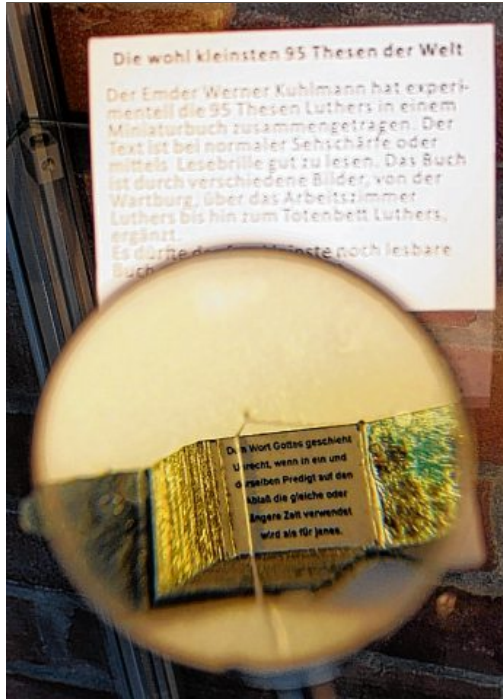 Die wohl kleinsten 95 Thesen der Welt
Der Emder Werner Kuhlmann hat experi-
mentell die 95 Thesen Luthers in einem
Miniaturbuch zusammengetragen. Der
Text ist bei normaler Sehschärfe oder
mittels Lesebrille gut zu lesen. Das Buch
ist durch verschiedene Bilder, von der
Wartburg, über das Arbeitszimmer
Luthers bis hin zum Totenbett Luthers,
ergänzt.
Es dürfte kleinste noch lesbare
Buch
Dem Wort Gottes geschieht
Unrecht, wenn in ein und
derselben Predigt auf den
Ablaß die gleiche oder
längere Zeit verwendet
wird als für jenes.